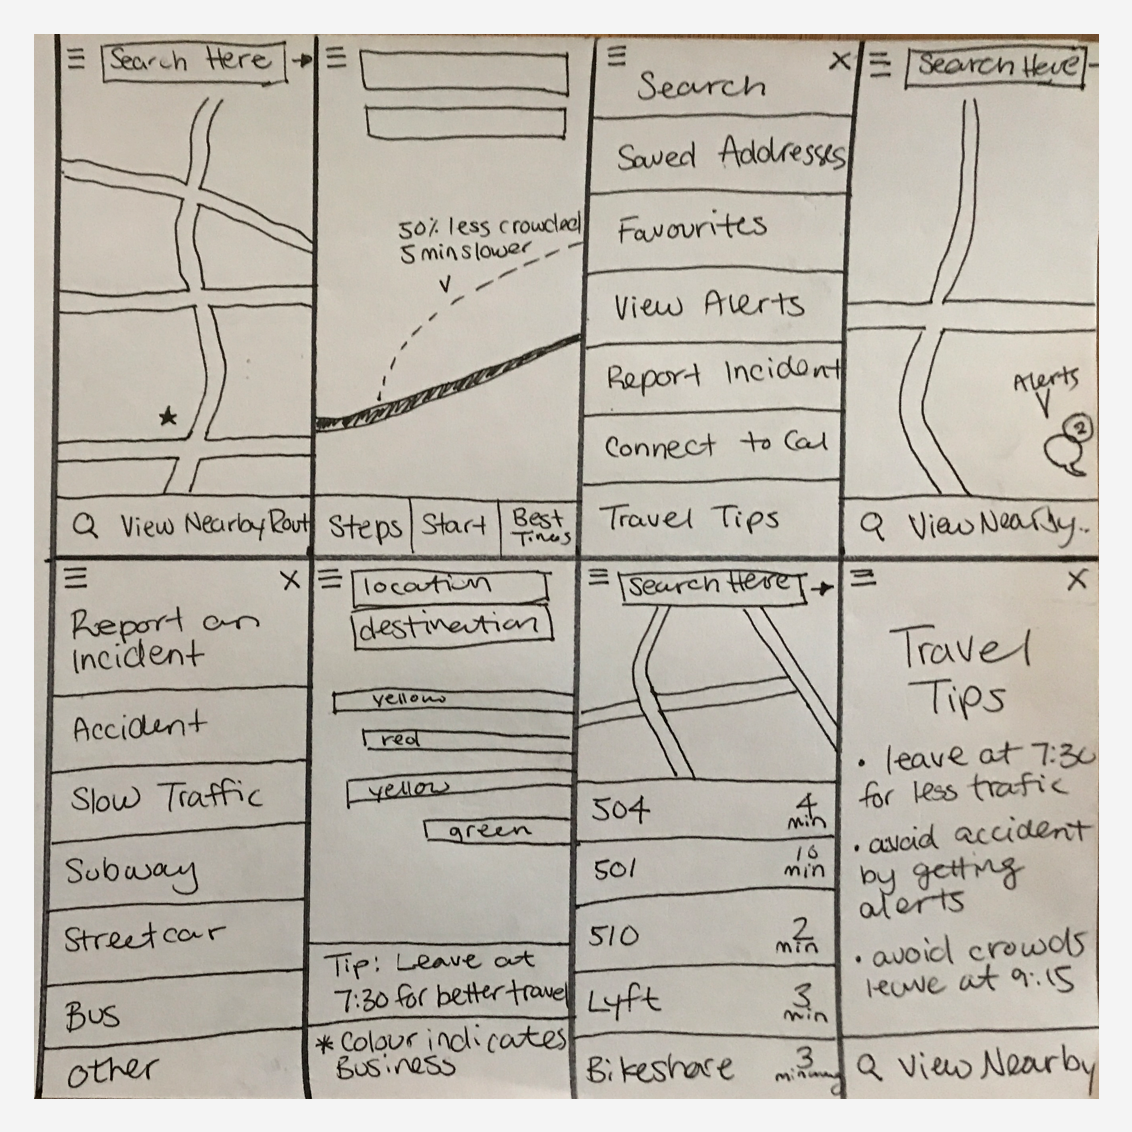 Search Here
View Nearby Rout
50% less crowded
5 min slower
Steps
Start
Best
Times
X
Search
Saved Addresses
Favourites
View Alerts
Report Incident
Connect to Cal
Travel Tips
Search Here
Alerts
2
View Nearby..
X
Report an
Incident
Accident
Slow Traffic
Subway
Streetcar
Bus
other
location
destination
yellow
red
yellow
green
Tip: Leave at
7:30 for better travel
* colour indicates
Business
Search Here
504 4 min
501 10 min
510 2 min
Lyft 3 min
Bikeshare 3
X
Travel
Tips
• leave at 7:30
for less trafic
• avoid accident
by getting
alerts
• avoid crowds
leave at 9:15
View Nearby